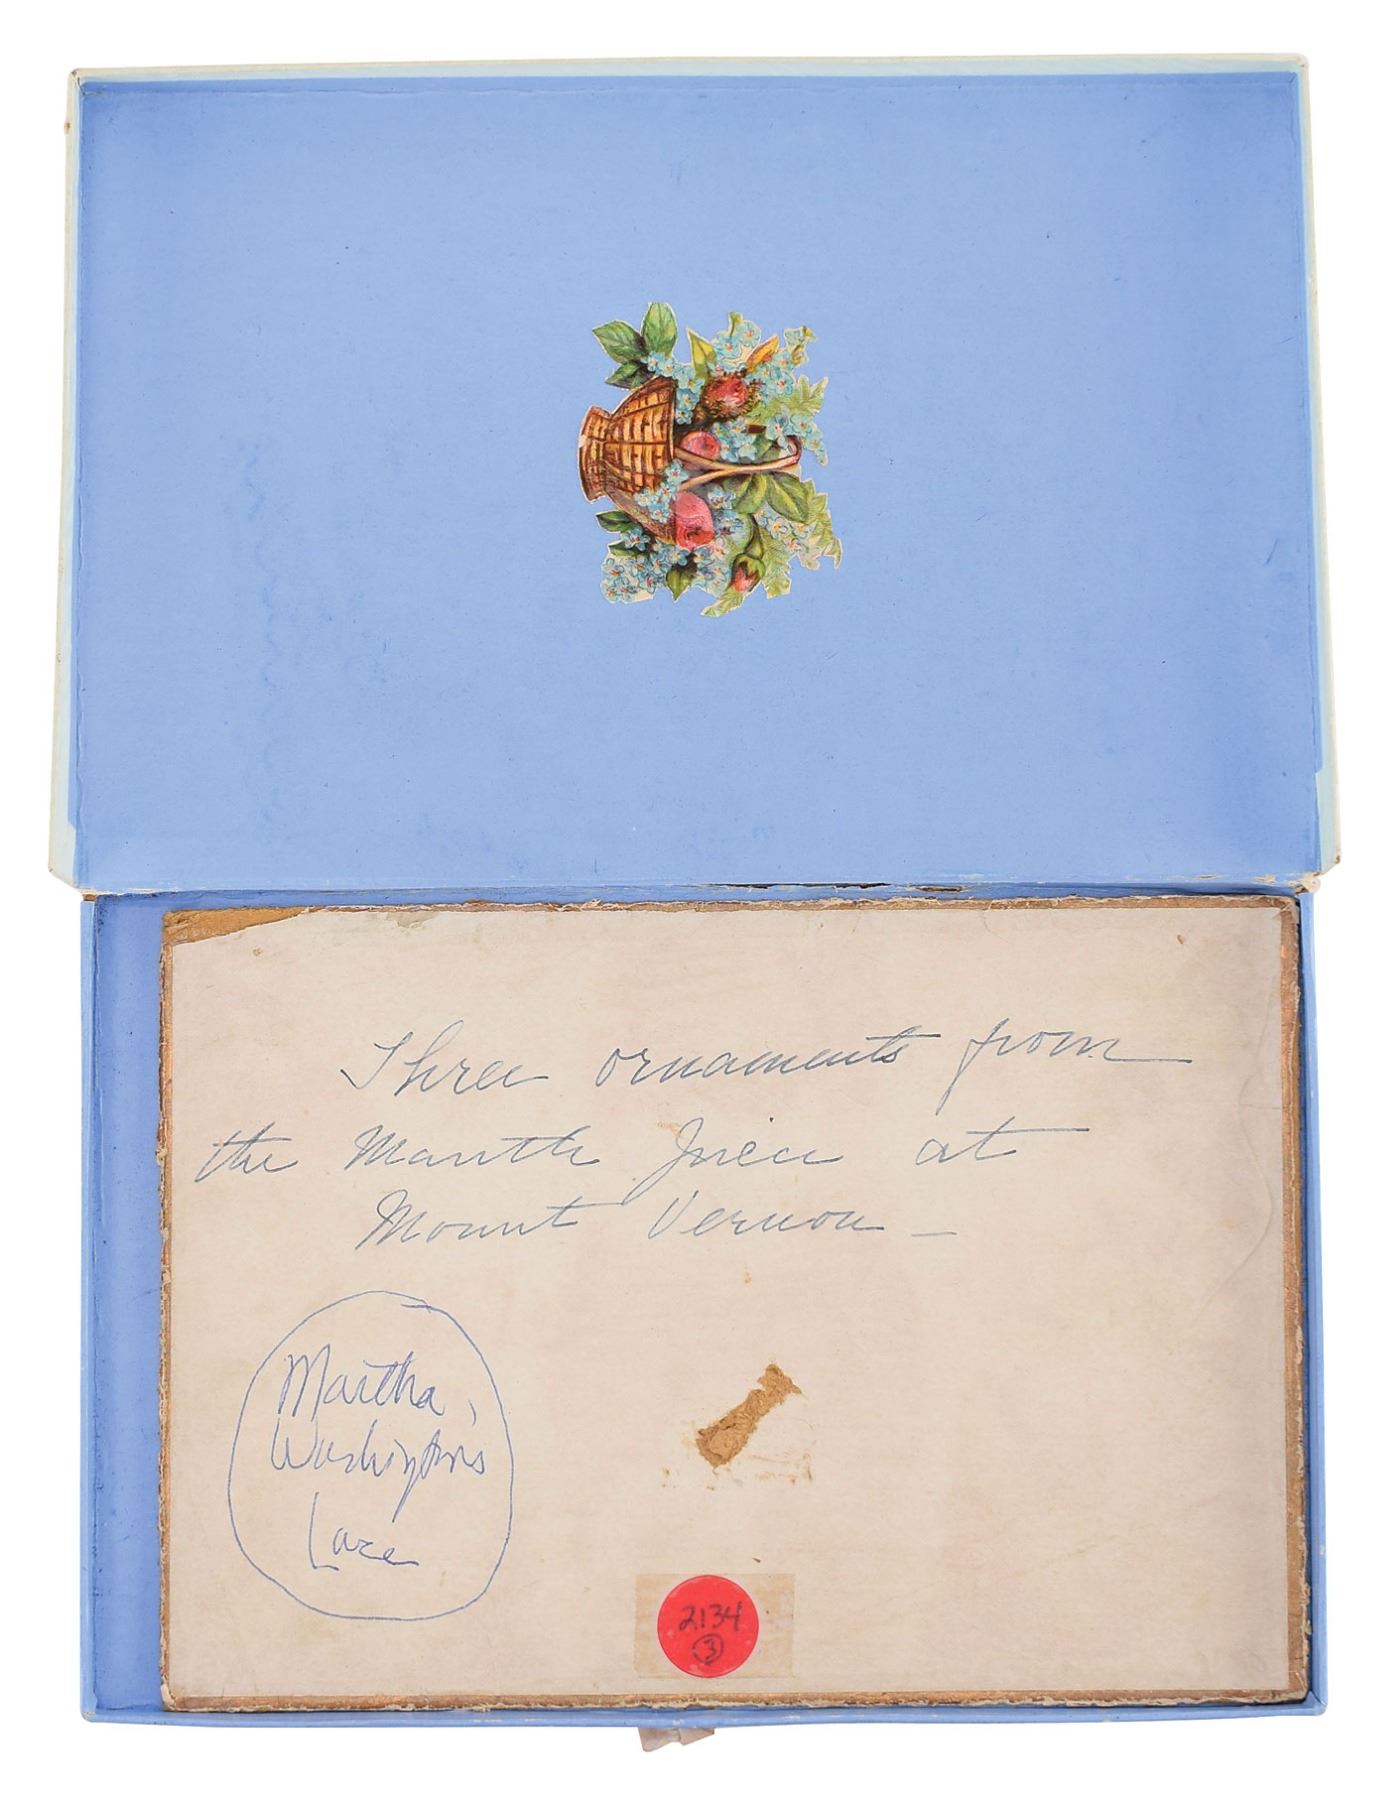 Three ornaments from
the Mantle Piece at
Mount Vernon –
Martha
Washington's
Lace
2134
3